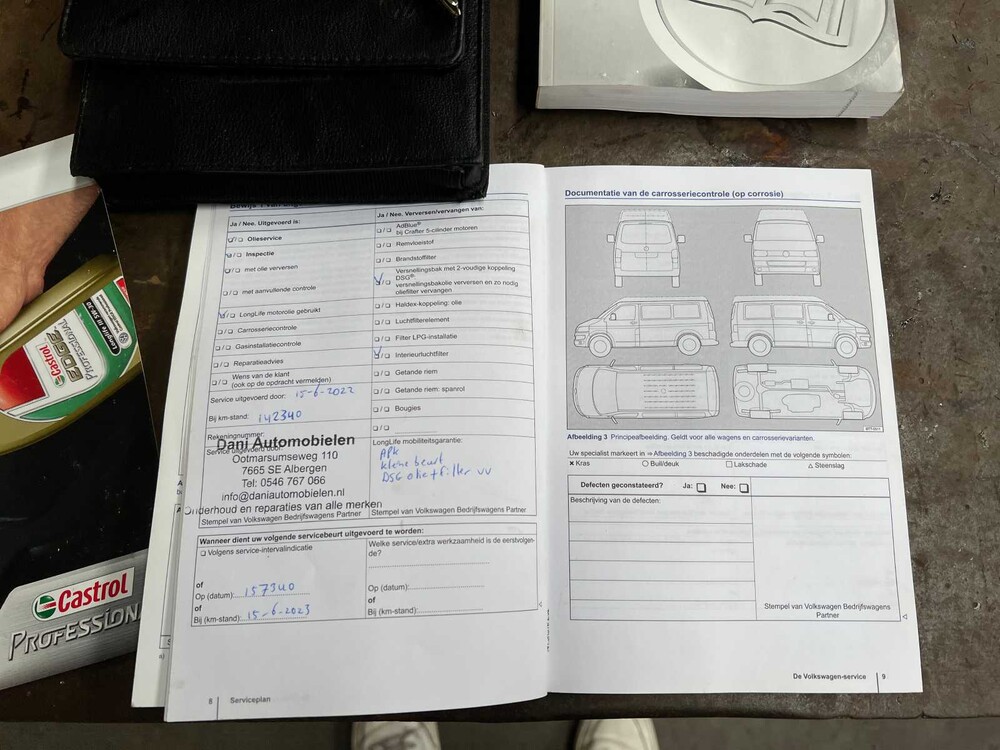 Ja / Nee. Uitgevoerd is:
Olieservice
Inspectie
met olie verversen
met aanvullende controle
LongLife motorolie gebruikt
Carrosseriecontrole
Gasinstallatiecontrole
Reparatieadvies
Wens van de klant
(ook op de opdracht vermelden)
Service uitgevoerd door: 15-6-2022
Bij km-stand: 142340
Rekeningnummer:
Service uitgevoerd door:
Dani Automobielen
Ootmarsumseweg 110
7665 SE Albergen
Tel: 0546 767 066
info@daniautomobielen.nl
Onderhoud en reparaties van alle merken
Stempel van Volkswagen Bedrijfswagens Partner
Ja / Nee. Verversen/vervangen van:
AdBlue®
bij Crafter 5-cilinder motoren
Remvloeistof
Brandstoffilter
Versnellingsbak met 2-voudige koppeling
DSG®:
versnellingsbakolie verversen en zo nodig
oliefilter vervangen
Haldex-koppeling: olie
Luchtfilterelement
Filter LPG-installatie
Interieurluchtfilter
Getande riem
Getande riem: spanrol
Bougies
LongLife mobiliteitsgarantie:
APK
kleine beurt
DSG olie + filter vv
Stempel van Volkswagen Bedrijfswagens Partner
Wanneer dient uw volgende servicebeurt uitgevoerd te worden:
Volgens service-intervalindicatie
of
Op (datum): 157340
of
Bij (km-stand): 15-6-2023
Welke service/extra werkzaamheid is de eerstvolgen-
de?
Op (datum):
of
Bij (km-stand):
8 Serviceplan
Documentatie van de carrosseriecontrole (op corrosie)
Afbeelding 3 Principeafbeelding. Geldt voor alle wagens en carrosserievarianten.
Uw specialist markeert in ⇒ Afbeelding 3 beschadigde onderdelen met de volgende symbolen:
× Kras ○ Buil/deuk □ Lakschade △ Steenslag
Defecten geconstateerd? Ja: Nee:
Beschrijving van de defecten:
Stempel van Volkswagen Bedrijfswagens
Partner
De Volkswagen-service 9
Castrol
EDGE
PROFESSIONAL
Longlife III 5W-30
Castrol
PROFESSION